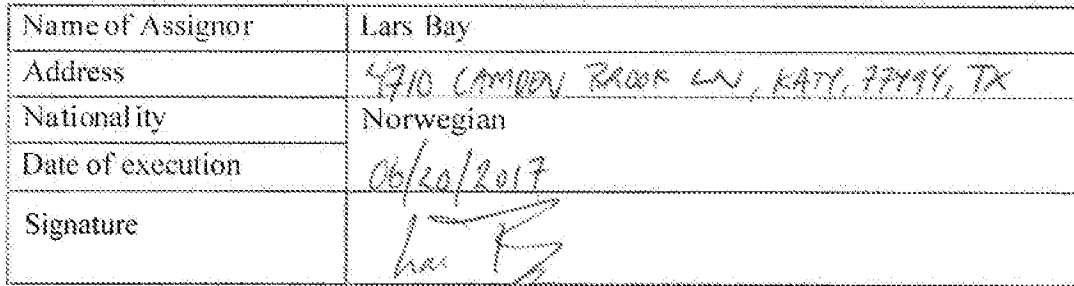 Name of Assignor Lars Bay
Address 4710 CAMDEN BROOK LN, KATY, 77494, TX
Nationality Norwegian
Date of execution 06/20/2017
Signature